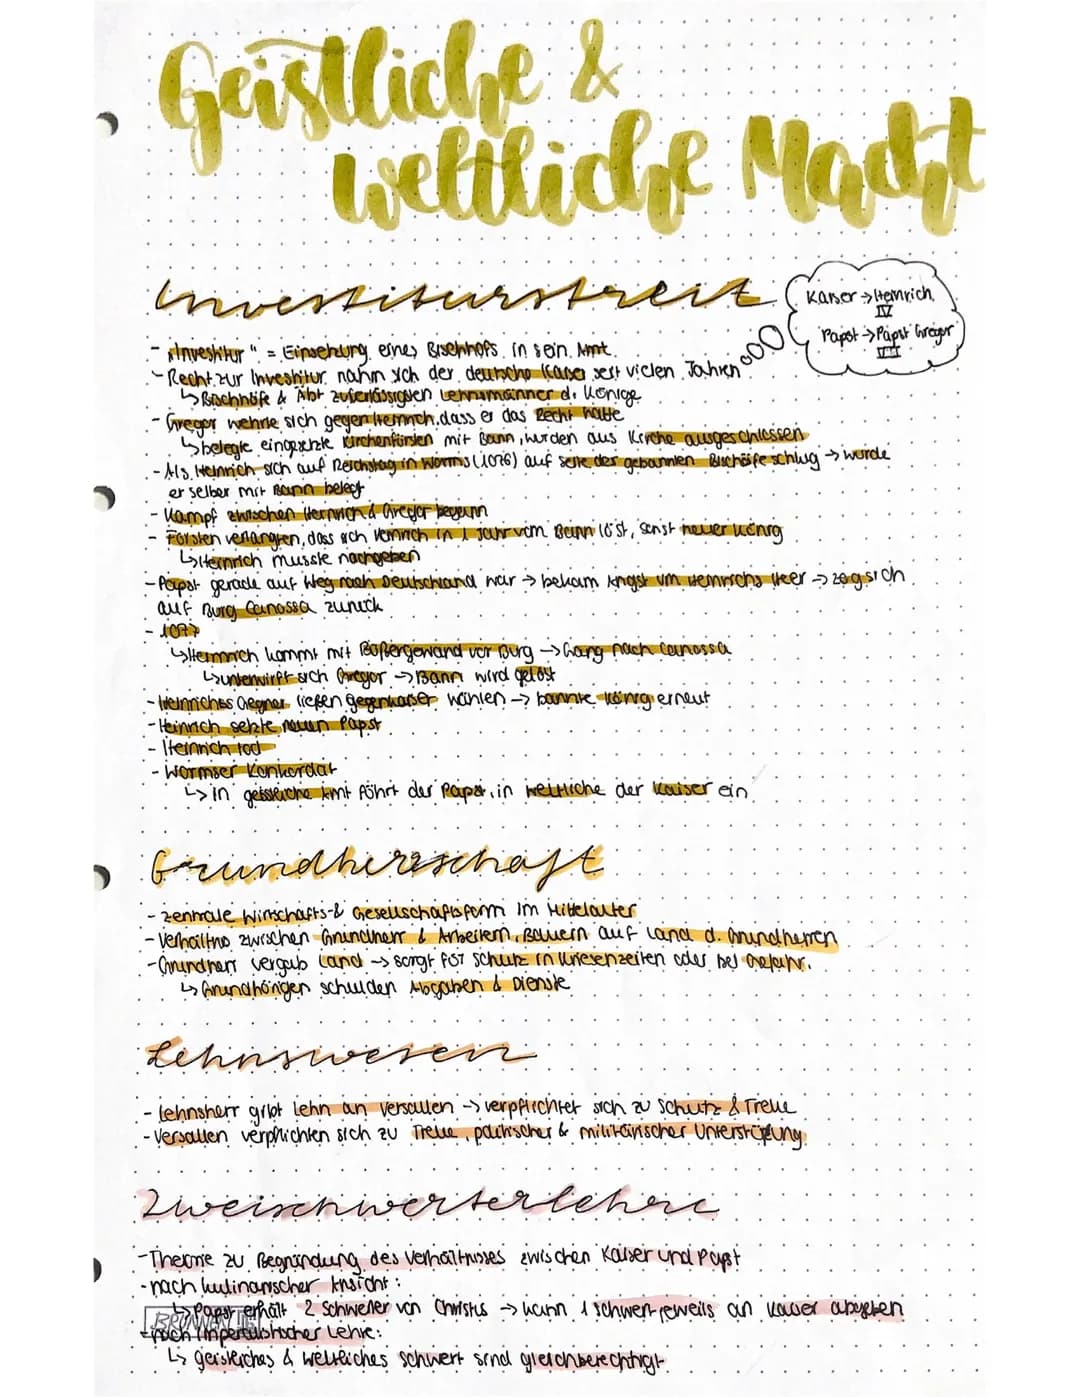 Geistliche &
weltliche Macht
Investiturstreit
Kaiser → Heinrich
IV
Papst → Papst Gregor
VII
- "Investitur" = Einsetzung eines Bischhofs in sein Amt
- Recht zur Investitur nahm sich der deutsche Kaiser seit vielen Jahren
↳ Bischhöfe & Abt zuverlässigsten Lehnsmänner d. Könige
- Gregor wehrte sich gegen Heinrich, dass er das Recht hatte
↳ belegte eingesetzte Kirchenfürsten mit Bann, wurden aus Kirche ausgeschlossen
- Als Heinrich sich auf Reichstag in Worms (1076) auf seite des gebannten Bischöfe schlug → wurde
er selber mit Bann belegt
- Kampf zwischen Heinrich & Gregor begann
- Fürsten verlangten, dass sich Heinrich in 1 Jahr vom Bann löst, sonst neuer König
↳ Heinrich musste nachgeben
- Papst gerade auf Weg nach Deutschland war → bekam Angst um Heinrichs Heer → zog sich
auf Burg Canossa zurück
- 1077
↳ Heinrich kommt mit Büßergewand vor Burg → Gang nach Canossa
↳ unterwirft sich Gregor → Bann wird gelöst
- Heinriches Gegner ließen gegenkaiser wählen → bannte König erneut
- Heinrich setzte neuen Papst
- Heinrich tod
- Wormser Konkordat
↳ in geistliche Amt führt der Papst, in weltliche der Kaiser ein
Grundherrschaft
- zentrale Wirtschafts-& Gesellschaftsform im Mittelalter
- Verhältnis zwischen Grundherr & Arbeitern, Bauern auf Land d. Grundherren
- Grundherr vergab Land → sorgt für Schutz in Krisenzeiten oder bei Gefahr.
↳ Grundhörigen schulden Abgaben & Dienste
Lehnswesen
- Lehnsherr gibt Lehn an Versallen → verpflichtet sich zu Schutz & Treue
- Versallen verpflichten sich zu Treue, politischer & militärischer Unterstützung
Zweischwerterlehre
- Theorie zu Begründung des Verhältnisses zwischen Kaiser und Papst
- nach kurlinarischer Ansicht:
↳ Papst erhält 2 Schwerter von Christus → kann 1 schwert jeweils an Kaiser abgeben
- nach Lehre:
↳ geistliches & weltliches Schwert sind gleichberechtigt